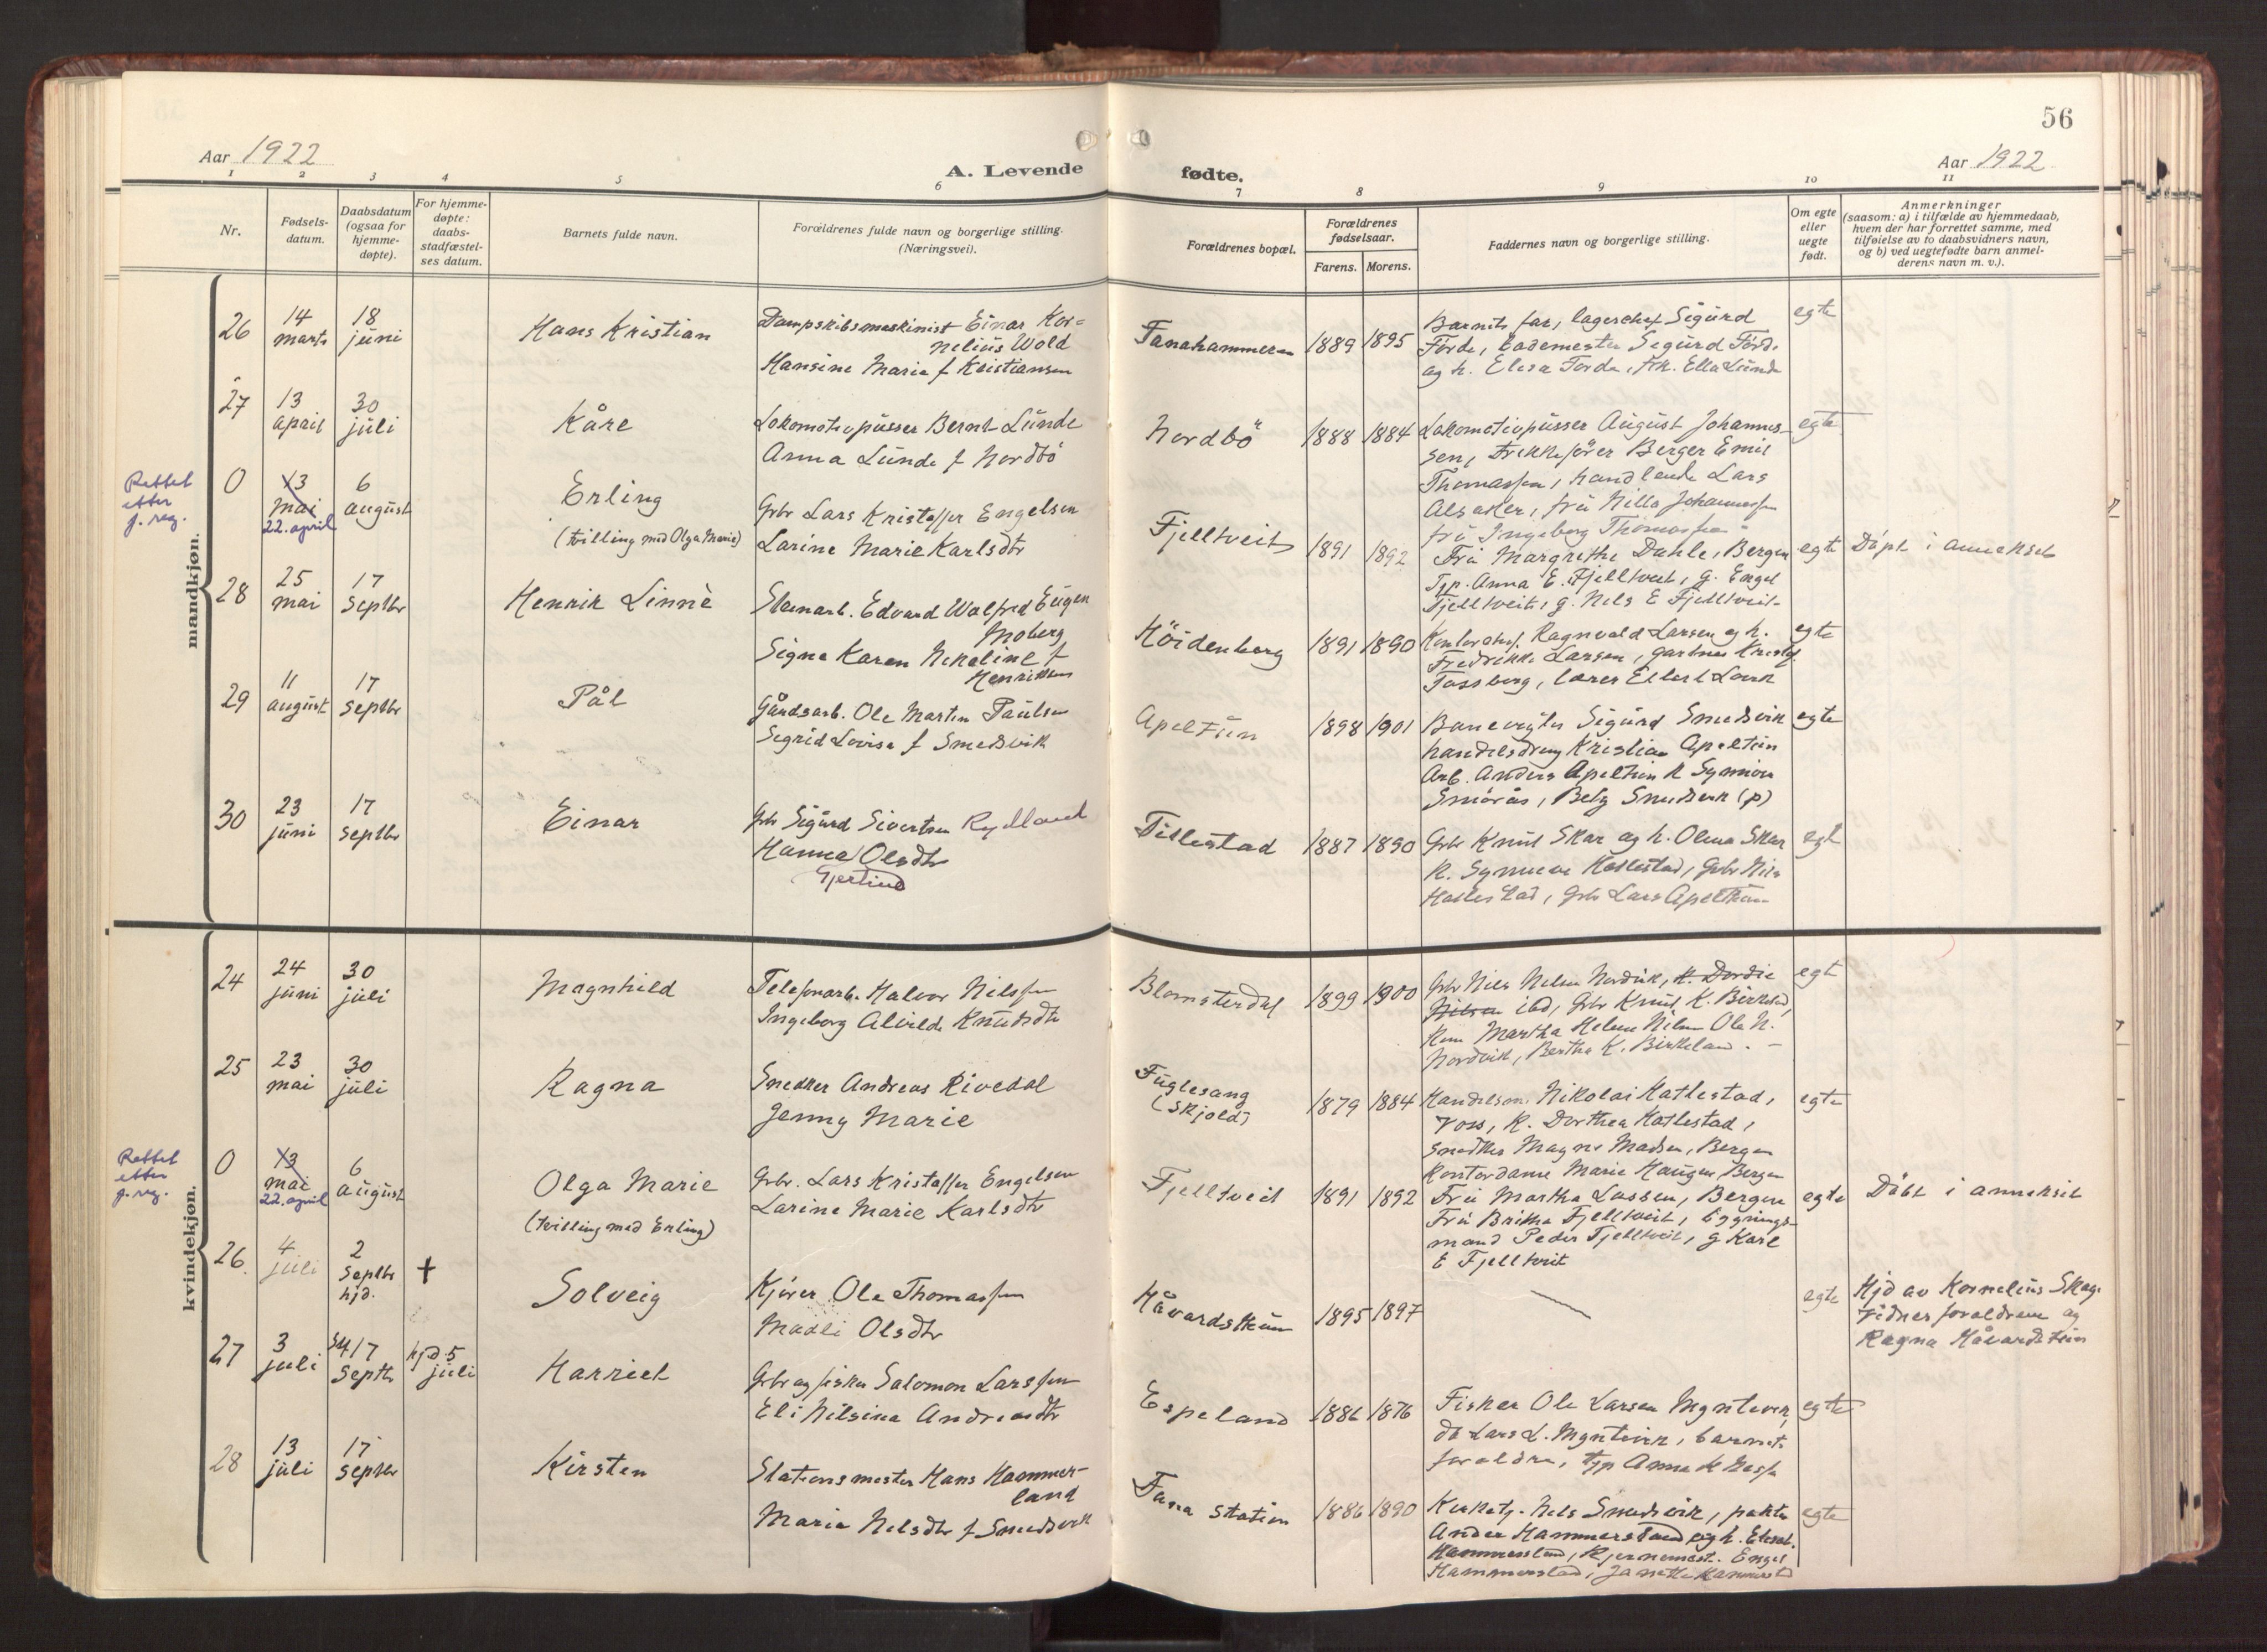 56
Aar 1922
A. Levende fødte.
Aar 1922
1 2 3 4 5 6 7 8 9 10 11
Nr.
Fødsels-
datum.
Daabsdatum
(ogsaa for
hjemme-
døpte).
For hjemme-
døpte:
daabs-
stadfæstel-
ses datum.
Barnets fulde navn.
Forældrenes fulde navn og borgerlige stilling.
(Næringsvei).
Forældrenes bopæl.
Forældrenes
fødselsaar.
Farens. Morens.
Faddernes navn og borgerlige stilling.
Om egte
eller
uegte
født.
Anmerkninger
(saasom: a) i tilfælde av hjemmedaab,
hvem der har forrettet samme, med
tilføielse av to daabsvidners navn,
og b) ved uegtefødte barn anmel-
derens navn m. v.).
mandkjøn.
26
14
marts
18
juni
Hans Kristian
Dampskibsmaskinist Einar Kor-
nelius Wold
Hansine Marie f Kristiansen
Fanahammeren
1889 1895
Barnets far, lagerchef Sigurd
Førde, bademester Sigurd Førde
og h. Elisa Førde, frk. Ella Lunde
egte
27
13
april
30
juli
Kåre
Lokomotivpusser Bernt Lunde
Anna Lunde f Nordbö
Nordbö
1888 1884
Lokomotivpusser August Johannes-
sen, Trikkefører Berger Emil
Thomassen, handlende Lars
Alsaker, fru Hilla Johannessen
fru Ingeborg Thomassen
egte
Rettet
etter
f. reg.
0
13
mai
22. april
6
august
Erling
(tvilling med Olga Marie)
Gbr Lars Kristoffer Engelsen
Larine Marie Karlsdtr
Fjelltveit
1891 1892
Fru Margrethe Dahle, Bergen
Tjp. Anna E. Fjelltveit, g. Engel
Fjelltveit, g. Nels E Fjelltveit
egte
Döpt i annekset
28
25
mai
17
Septbr
Henrik Linnè
Stenarb. Edvard Walfred Eugen
Moberg
Signe Karen Nekoline f
Henriksen
Höidenborg
1891 1890
Kontorchef Ragnvald Larsen og h.
Fredrikke Larsen, gartner Kristof.
Tassberg, lærer Ellert Lovik
egte
29
11
august
17
Septbr
Pål
Gårdsarb. Ole Martin Paulsen
Sigrid Lovise f Smedsvik
Apeltun
1898 1901
Banevogter Sigurd Smedsvik
handelsdreng Kristian Apeltun
Arb. Anders Apeltun K Synnøve
Smörås, Betzy Smedsvik (p)
egte
30
23
juni
17
Septbr
Einar
Gbr Sigurd Sivertsen Rydland
Hanna Olsdtr
Gjertrud
Titlestad
1887 1890
Gbr Knut Skar og h. Olina Skar
K. Synneve Hatlestad, Gbr Nils
Hatlestad, Gbr Lars Apeltun
egt
kvindekjøn.
24
24
juni
30
juli
Magnhild
Telefonarb. Halvor Nilssen
Ingeborg Alvilde Knutsdtr
Blomsterdal
1899 1900
Gbr Nils Nelsen Nordvik, K. Dordie
Nilsen ibd, Gbr Knut K. Birkeland,
Kone Martha Helene Nilsen Ole N.
Nordvik, Bertha K. Birkeland. -
egt
25
23
mai
30
juli
Ragna
Snedker Andreas Rivedal
Jenny Marie
Fuglesang
(Skjold)
1879 1884
Handelsm. Nikolai Hatlestad,
Voss, K. Dorthea Hatlestad,
Snedker Magne Madsen, Bergen
Kontordame Marie Haugen, Bergen
egte
Rettet
etter
f. reg.
0
13
mai
22. april
6
august
Olga Marie
(tvilling med Erling)
Gbr. Lars Kristoffer Engelsen
Larine Marie Karlsdtr
Fjelltveit
1891 1892
Fru Martha Lassen, Bergen
Fru Britha Fjelltveit, bygnings-
mand Peder Fjelltveit, g Karl
E Fjelltveit
egte
Döbt i annekset
26.
4
juli
2
Septbr
hjd.
+
Solveig
Kjörer Ole Thomassen
Madli Olsdtr
Håvardstun
1895 1897
egte
Hjd av Kornelius Skage
Vidner foreldrene og
Ragna Håvardstun
27
3
juli
St 17
Septbr
hjd. 5
juli
Harriet
Gbr og fisker Salomon Larssen
Eli Nilsine Andreasdtr
Espeland
1886 1876
Fisker Ole Larsen Myntevik,
do Lars L. Myntevik, barnets
foreldre, tjp Anna K
egte
28
13
juli
17
Septbr
Kirsten
Stationsmester Hans Hammer-
land
Marie Nelsdtr f Smedsvik
Fana station
1886 1890
Kirketj. Nels Smedsvik,
Ander Hammersland og h. Elisab.
Hammersland, Engel
Hammersland, Janette Hammersl
egte